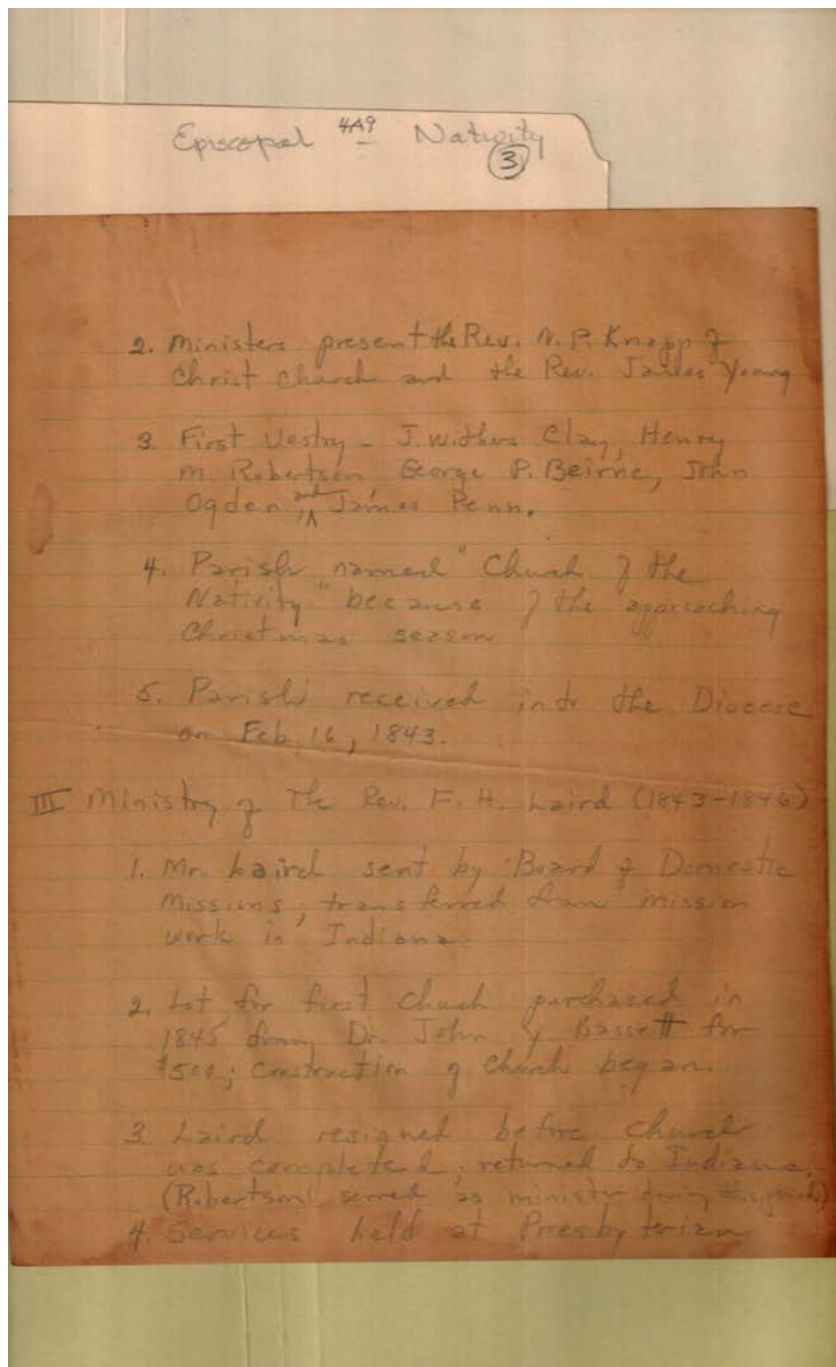 Episcopal 4A9 Nativity
3
2. Ministers present the Rev. N. P. Knapp of
Christ Church and the Rev. James Young
3 First Vestry - J. Withers Clay, Henry
M. Robertson, George P. Beirne, John
Ogden, and James Penn.
4. Parish named "Church of the
Nativity" because of the approaching
Christmas season
5. Parish received into the Diocese
on Feb. 16, 1843.
III Ministry of The Rev. F. H. Laird (1843-1846)
1. Mr. Laird sent by Board of Domestic
Missions; transferred from mission
work in Indiana.
2. Lot for first church purchased in
1845 from Dr. John Y Bassett for
$500; construction of church began.
3. Laird resigned before church
was completed; returned to Indiana.
(Robertson served as minister during this period)
4. Services held at Presbyterian